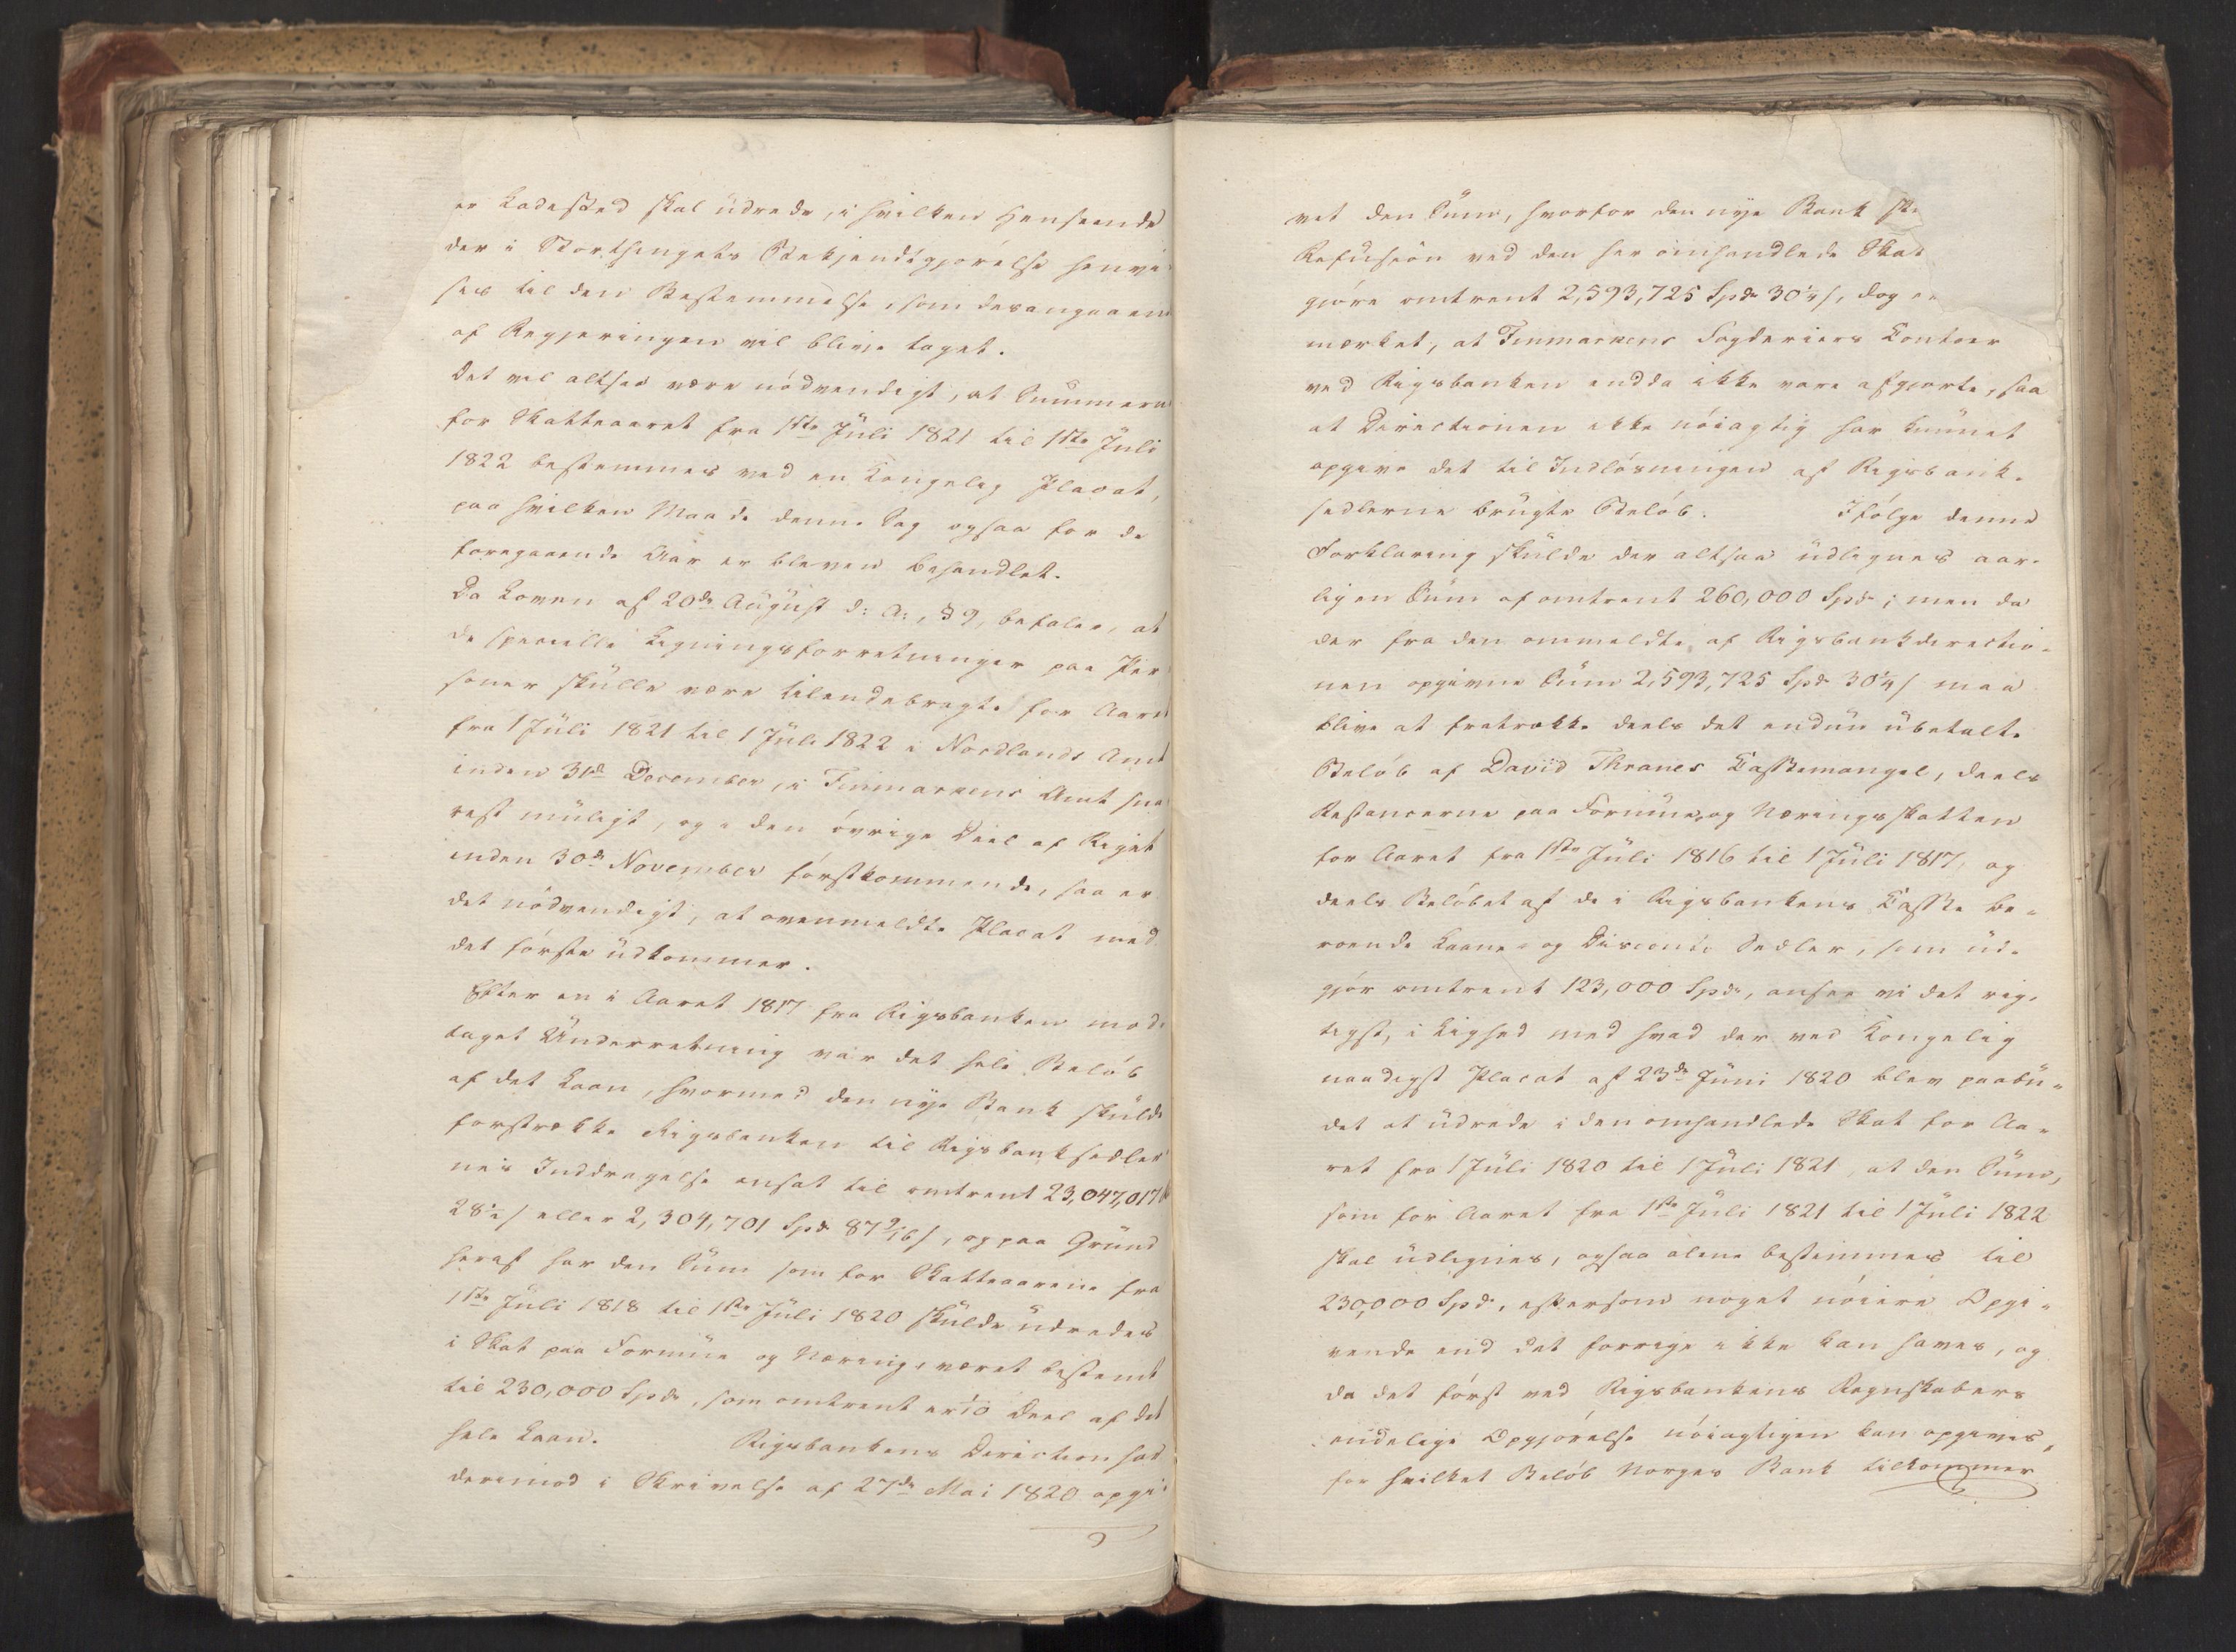 er Ladested skal udrede, i hvilken Henseende
der i Storthingets Bekjendtgjørelse henvi-
ses til den Bestemmelse, som desangaaende
af Regjeringen vil blive taget.
Det vil altsaa være nødvendigt, at Summerne
for Skatteaaret fra 1ste Juli 1821 til 1ste Juli
1822 bestemmes ved en Kongelig Placat,
paa hvilken Maade denne Sag ogsaa for de
foregaaende Aar er bleven behandlet.
Da Loven af 20de August d: A:, § 9, befaler, at
de specielle Ligningsforretninger paa Per-
soner skulle være tilendebragte for Aaret
fra 1 Juli 1821 til 1 Juli 1822 i Nordlands Amt
inden 31de December, i Finmarkens Amt sna-
rest muligt, og i den øvrige Deel af Riget
inden 30de November førstkommende, saa er
det nødvendigt, at ovenmeldte Placat med
det første udkommer.
Efter en i Aaret 1817 fra Rigsbanken mod-
taget Underretning var det hele Beløb
af det Laan, hvormed den nye Bank skulde
forstrække Rigsbanken til Rigsbanksedler-
nes Inddragelse ansat til omtrent 23,047,017
28½ s eller 2,304,701 Spd 87 9/16 s, og paa Grund
heraf har den Sum som for Skatteaarene fra
1ste Juli 1818 til 1ste Juli 1820 skulde udredes
i Skat paa Formue og Næring, været bestemt
til 230,000 Spd, som omtrent er 1/10 Deel af det
hele Laan. Rigsbankens Direction har
derimod i Skrivelse af 27de Mai 1820 opgi-
vet den Sum, hvorfor den nye Bank
Refusion ved den her omhandlede Skat
gjøre omtrent 2,593,725 Spd 30¼ s, dog
mærket, at Finmarkens Fogderiers Contoer
ved Rigsbanken endda ikke vare afgjorte, saa
at Directionen ikke nøiagtig har kunnet
opgive det til Indløsningen af Rigsbank-
sedlerne brugte Beløb. Ifølge denne
Forklaring skulde der altsaa udlignes aar-
lig en Sum af omtrent 260,000 Spd; men da
der fra den ommeldte, af Rigsbankdirectio-
nen opgivne Sum 2,593,725 Spd 30¼ s maa
blive at fratrække deels det endnu ubetalte
Beløb af David Thranes Cassemangel, deels
Restancerne paa Formue og Næringsskatten
for Aaret fra 1ste Juli 1816 til 1 Juli 1817, og
deels Beløbet af de i Rigsbankens Casse be-
roende Laane- og Disconto Sedler, som ud-
gjør omtrent 123,000 Spd, ansee vi det rig-
tigst, i Lighed med hvad der ved Kongelig
naadigst Placat af 23de Juni 1820 blev paabu-
det at udrede i den omhandlede Skat for Aa-
ret fra 1 Juli 1820 til 1 Juli 1821, at den Sum,
som for Aaret fra 1ste Juli 1821 til 1 Juli 1822
skal udlignes, ogsaa alene bestemmes til
230,000 Spd, eftersom noget nøiere Opgi-
vende end det forrige ikke kan haves, og
da det først ved Rigsbankens Regnskabers
endelige Opgjørelse nøiagtigen kan opgives,
for hvilket Beløb Norges Bank tilkommer